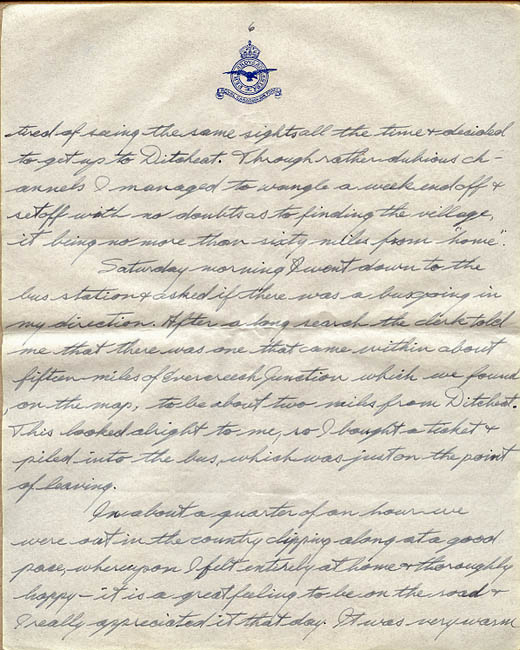 6
PER ARDUA AD ASTRA
ROYAL CANADIAN AIR FORCE
tired of seeing the same sights all the time & decided
to get up to Ditcheat. Through rather dubious ch-
annels I managed to wangle a week end off &
set off with no doubts as to finding the village,
it being no more than sixty miles from "home".
Saturday morning I went down to the
bus station & asked if there was a bus going in
my direction. After a long search the clerk told
me that there was one that came within about
fifteen miles of Evercreech Junction which we found
, on the map, to be about two miles from Ditcheat.
This looked alright to me, so I bought a ticket &
piled into the bus, which was just on the point
of leaving.
In about a quarter of an hour we
were out in the country clipping along at a good
pace, whereupon I felt entirely at home & thoroughly
happy - it is a great feeling to be on the road &
I really appreciated it that day. It was very warm